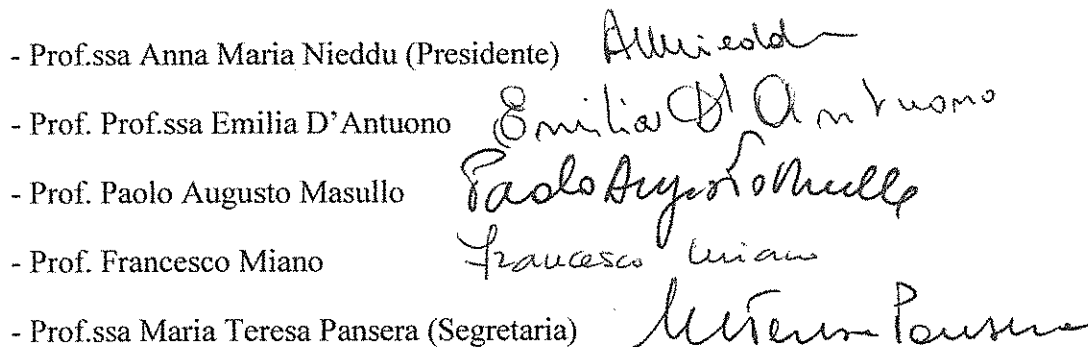 - Prof.ssa Anna Maria Nieddu (Presidente) AMNieddu
- Prof. Prof.ssa Emilia D'Antuono Emilia D'Antuono
- Prof. Paolo Augusto Masullo Paolo Augusto Masullo
- Prof. Francesco Miano Francesco Miano
- Prof.ssa Maria Teresa Pansera (Segretaria) MTeresa Pansera